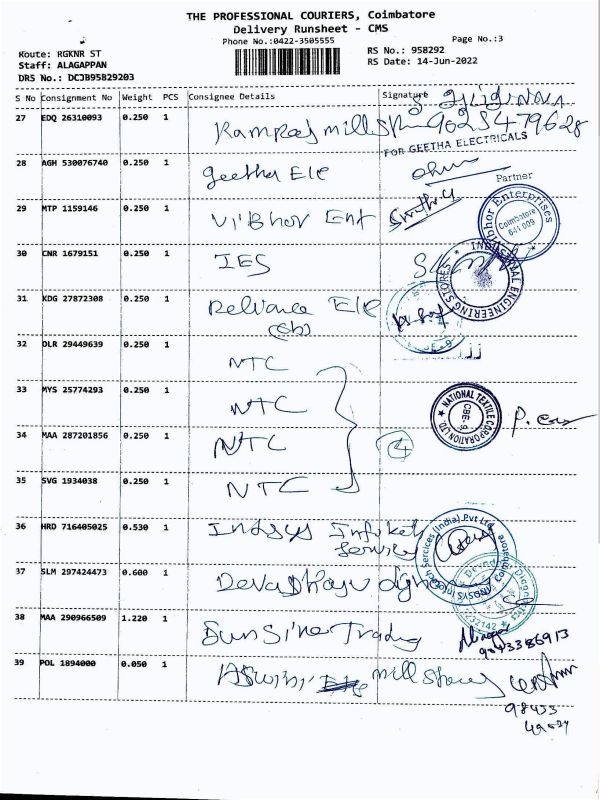 THE PROFESSIONAL COURIERS, Coimbatore
Delivery Runsheet - CMS
Phone No.:0422-3505555
Page No.:3
Route: RGKNR ST
Staff: ALAGAPPAN
DRS No.: DCJB95829203
RS No.: 958292
RS Date: 14-Jun-2022
S No Consignment No Weight PCS Consignee Details Signature
27 EDQ 26310093 0.250 1 Ramraj mill 9025479628
FOR GEETHA ELECTRICALS
28 AGH 530076740 0.250 1 Geetha Ele
Partner
29 MTP 1159146 0.250 1 Vibhor Ent
Vibhor Enterprises Coimbatore 641 009
30 CNR 1679151 0.250 1 IES
INDUSTRIAL ENGINEERING STORES
31 KDG 27872308 0.250 1 Reliance Ele
(Sb)
32 DLR 29449639 0.250 1 NTC
33 MYS 25774293 0.250 1 NTC
NATIONAL TEXTILE CORPORATION LTD. CBE-9
34 MAA 287201856 0.250 1 NTC 4
35 SVG 1934038 0.250 1 NTC
36 HRD 716405025 0.530 1 Indsys Infotech
Service
37 SLM 297424473 0.600 1 Devadhayu
38 MAA 290966509 1.220 1 Sun Sine Trading
39 POL 1894000 0.050 1 Aswini mill stores
98433